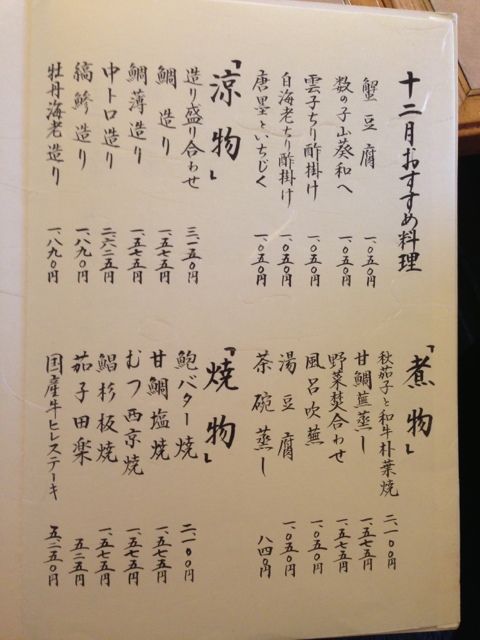 十二月おすすめ料理
蟹豆腐 一、〇五〇円
数の子山葵和へ 一、〇五〇円
雲子ちり酢掛け 一、〇五〇円
白海老ちり酢掛け 一、〇五〇円
唐墨といちじく 一、〇五〇円
「涼物」
造り盛り合わせ 三、一五〇円
鯛造り 一、五七五円
鯛薄造り 一、五七五円
中トロ造り 二、六二五円
縞鯵造り 一、八九〇円
牡丹海老造り 一、八九〇円
「煮物」
秋茄子と和牛朴葉焼 二、一〇〇円
甘鯛蕪蒸し 一、五七五円
野菜焚合わせ 一、五七五円
風呂吹蕪 一、〇五〇円
湯豆腐 一、〇五〇円
茶碗蒸し 八四〇円
「焼物」
鮑バター焼 二、一〇〇円
甘鯛塩焼 一、五七五円
むつ西京焼 一、五七五円
鯧杉板焼 一、五七五円
茄子田楽 五二五円
国産牛ヒレステーキ 五、二五〇円